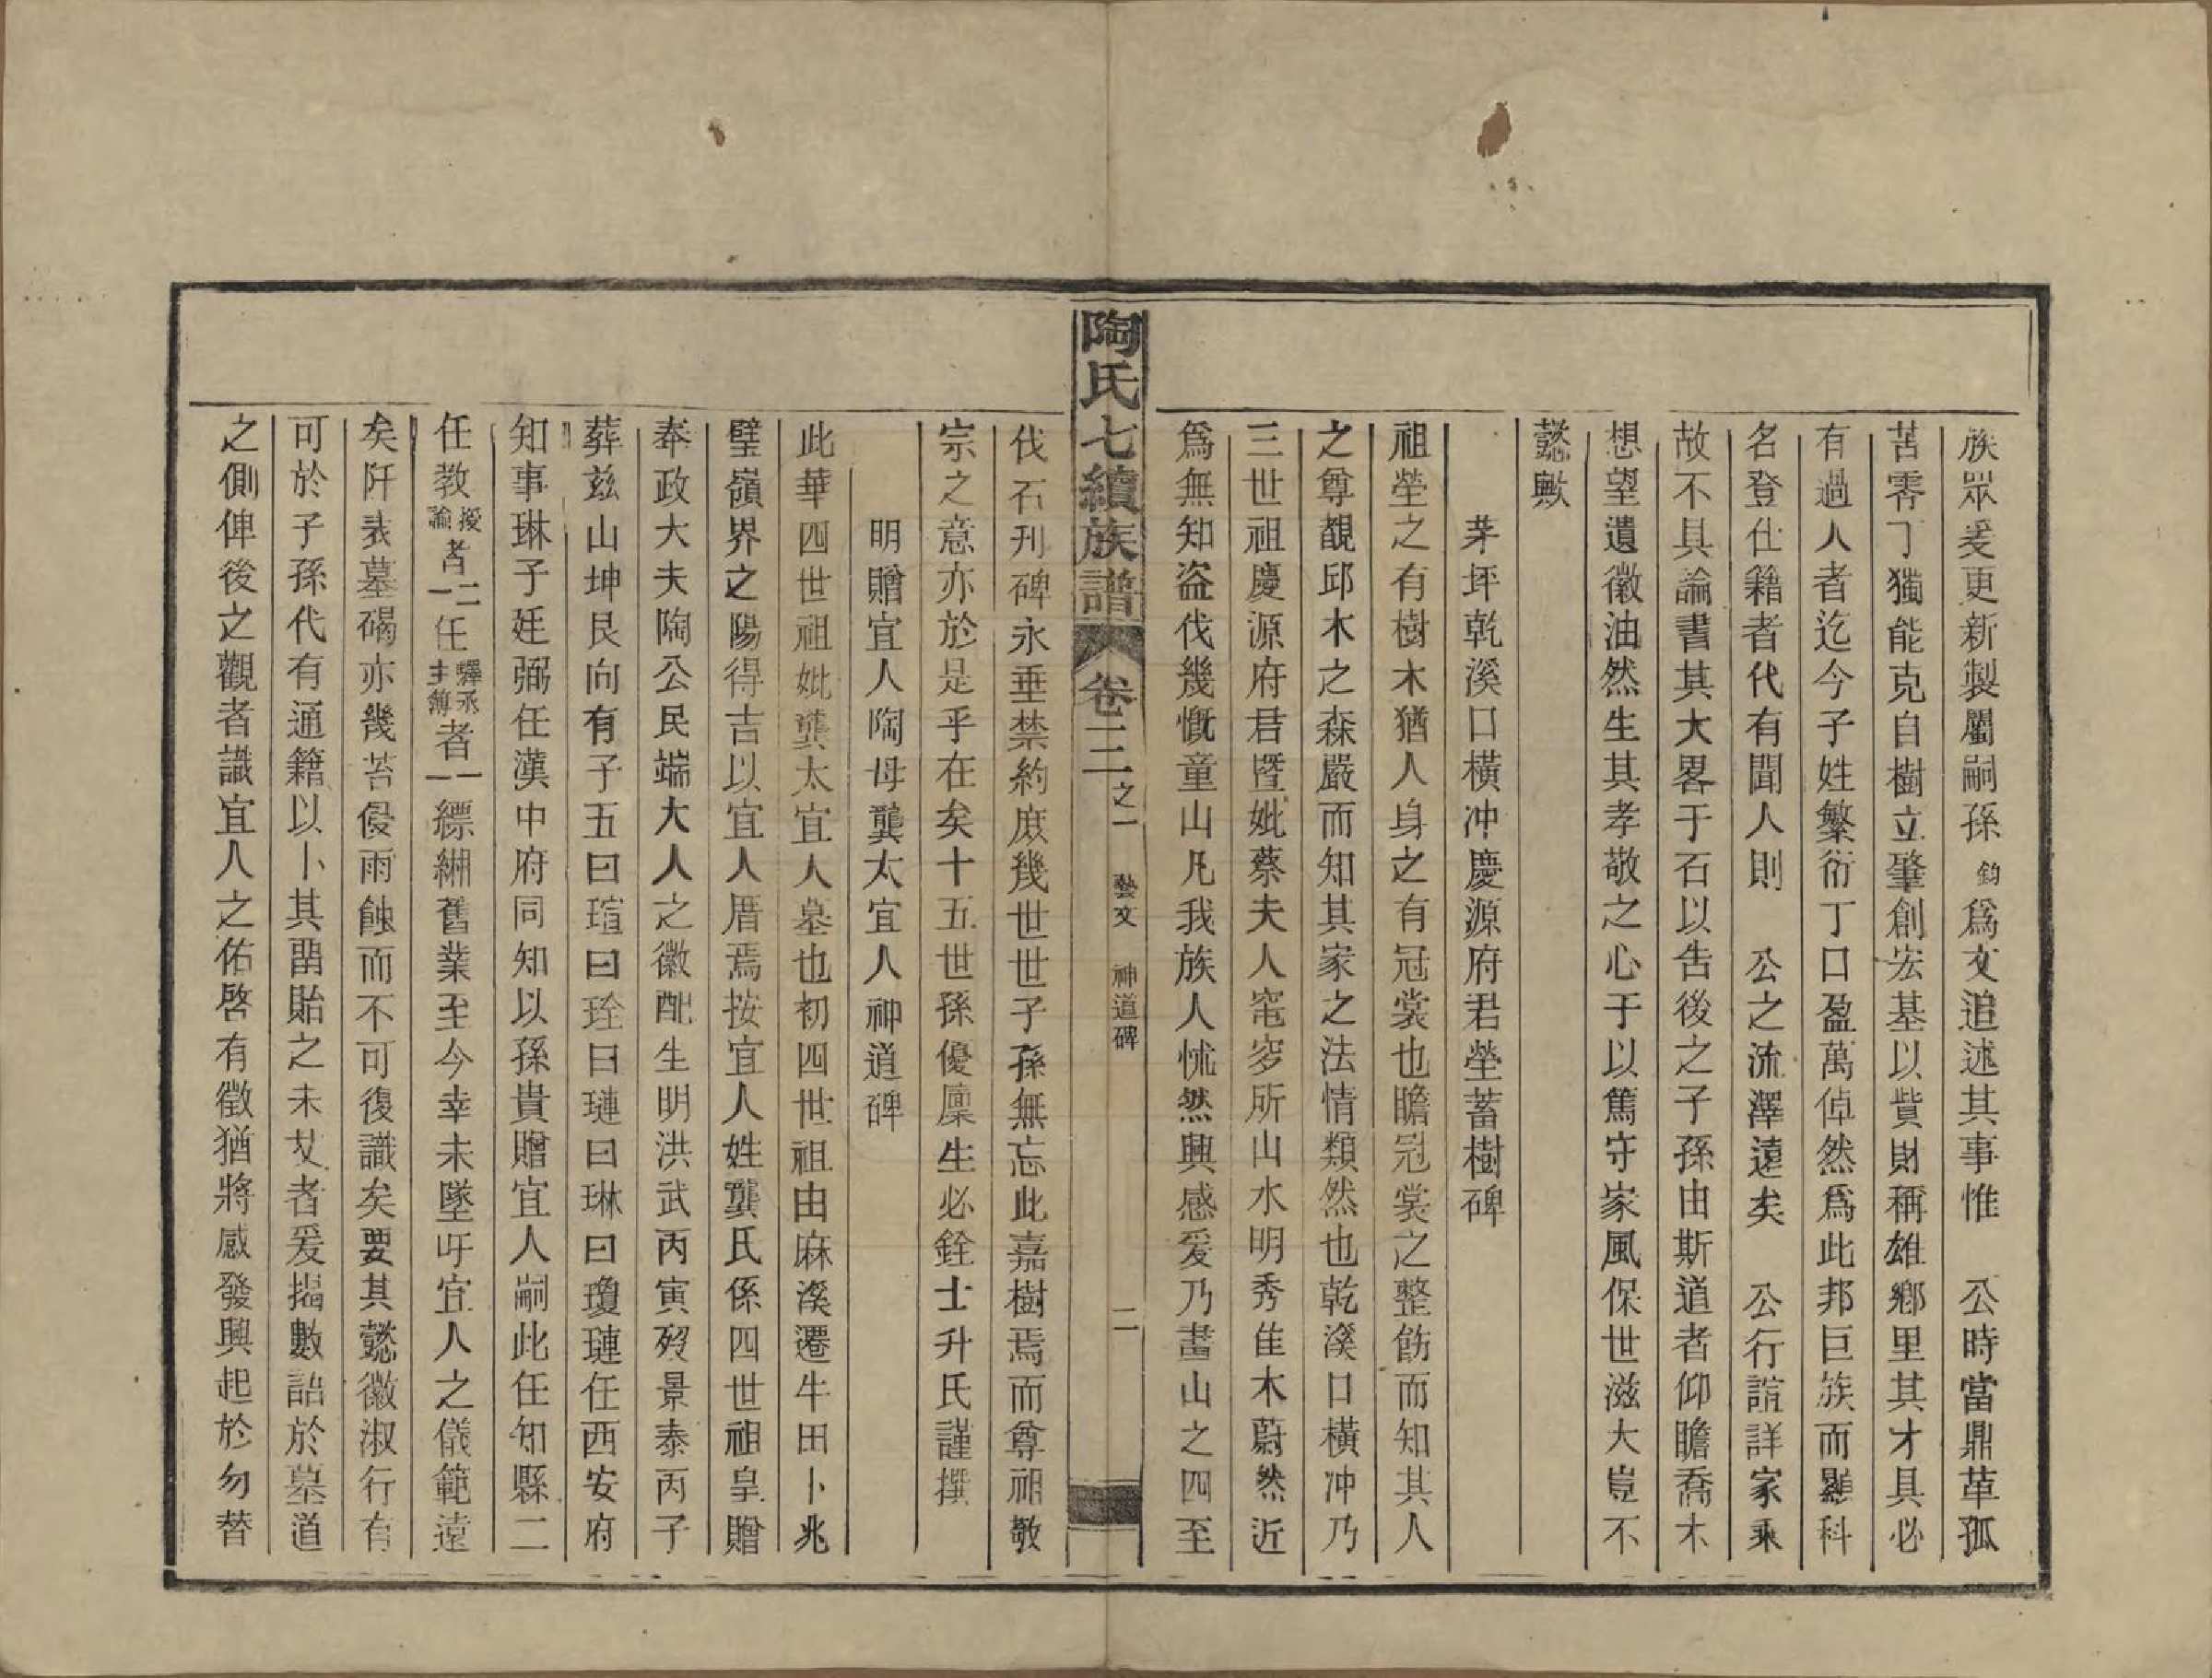 族眾爰更新製屬嗣孫鈞爲文追述其事惟　公時當鼎革孤
苦零丁獨能克自樹立肇創宏基以貲財稱雄鄉里其才具必
有過人者迄今子姓繁衍丁口盈萬倬然爲此邦巨族而顯科
名登仕籍者代有聞人則　公之流澤遠矣　公行誼詳家乘
故不具論書其大畧于石以告後之子孫由斯道者仰瞻喬木
想望遺徽油然生其孝敬之心于以篤守家風保世滋大豈不
懿歟
茅坪乾溪口橫冲慶源府君塋蓄樹碑
祖塋之有樹木猶人身之有冠裳也瞻冠裳之整飭而知其人
之尊覩邱木之森嚴而知其家之法情類然也乾溪口橫冲乃
三世祖慶源府君暨妣蔡夫人窀穸所山水明秀佳木蔚然近
爲無知盜伐幾慨童山凡我族人怵然興感爰乃畫山之四至
陶氏七續族譜　卷二之一　藝文　神道碑　二
伐石刊碑永垂禁約庶幾世世子孫無忘此嘉樹焉而尊祖敬
宗之意亦於是乎在矣十五世孫優廩生必銓士升氏謹撰
明贈宜人陶母龔太宜人神道碑
此華四世祖妣龔太宜人墓也初四世祖由麻溪遷牛田卜兆
璧嶺界之陽得吉以宜人厝焉按宜人姓龔氏係四世祖皇贈
奉政大夫陶公民端大人之徽配生明洪武丙寅歿景泰丙子
葬茲山坤艮向有子五曰瑄曰琻曰璉曰琳曰瓊璉任西安府
知事琳子廷弼任漢中府同知以孫貴贈宜人嗣此任知縣二
任教授諭者二一任驛丞主簿者一一縹緗舊業至今幸未墜吁宜人之儀範遠
矣阡表墓碣亦幾苔侵雨蝕而不可復識矣要其懿徽淑行有
可於子孫代有通籍以卜其留貽之未艾者爰揭數語於墓道
之側俾後之觀者識宜人之佑啓有徵猶將感發興起於勿替